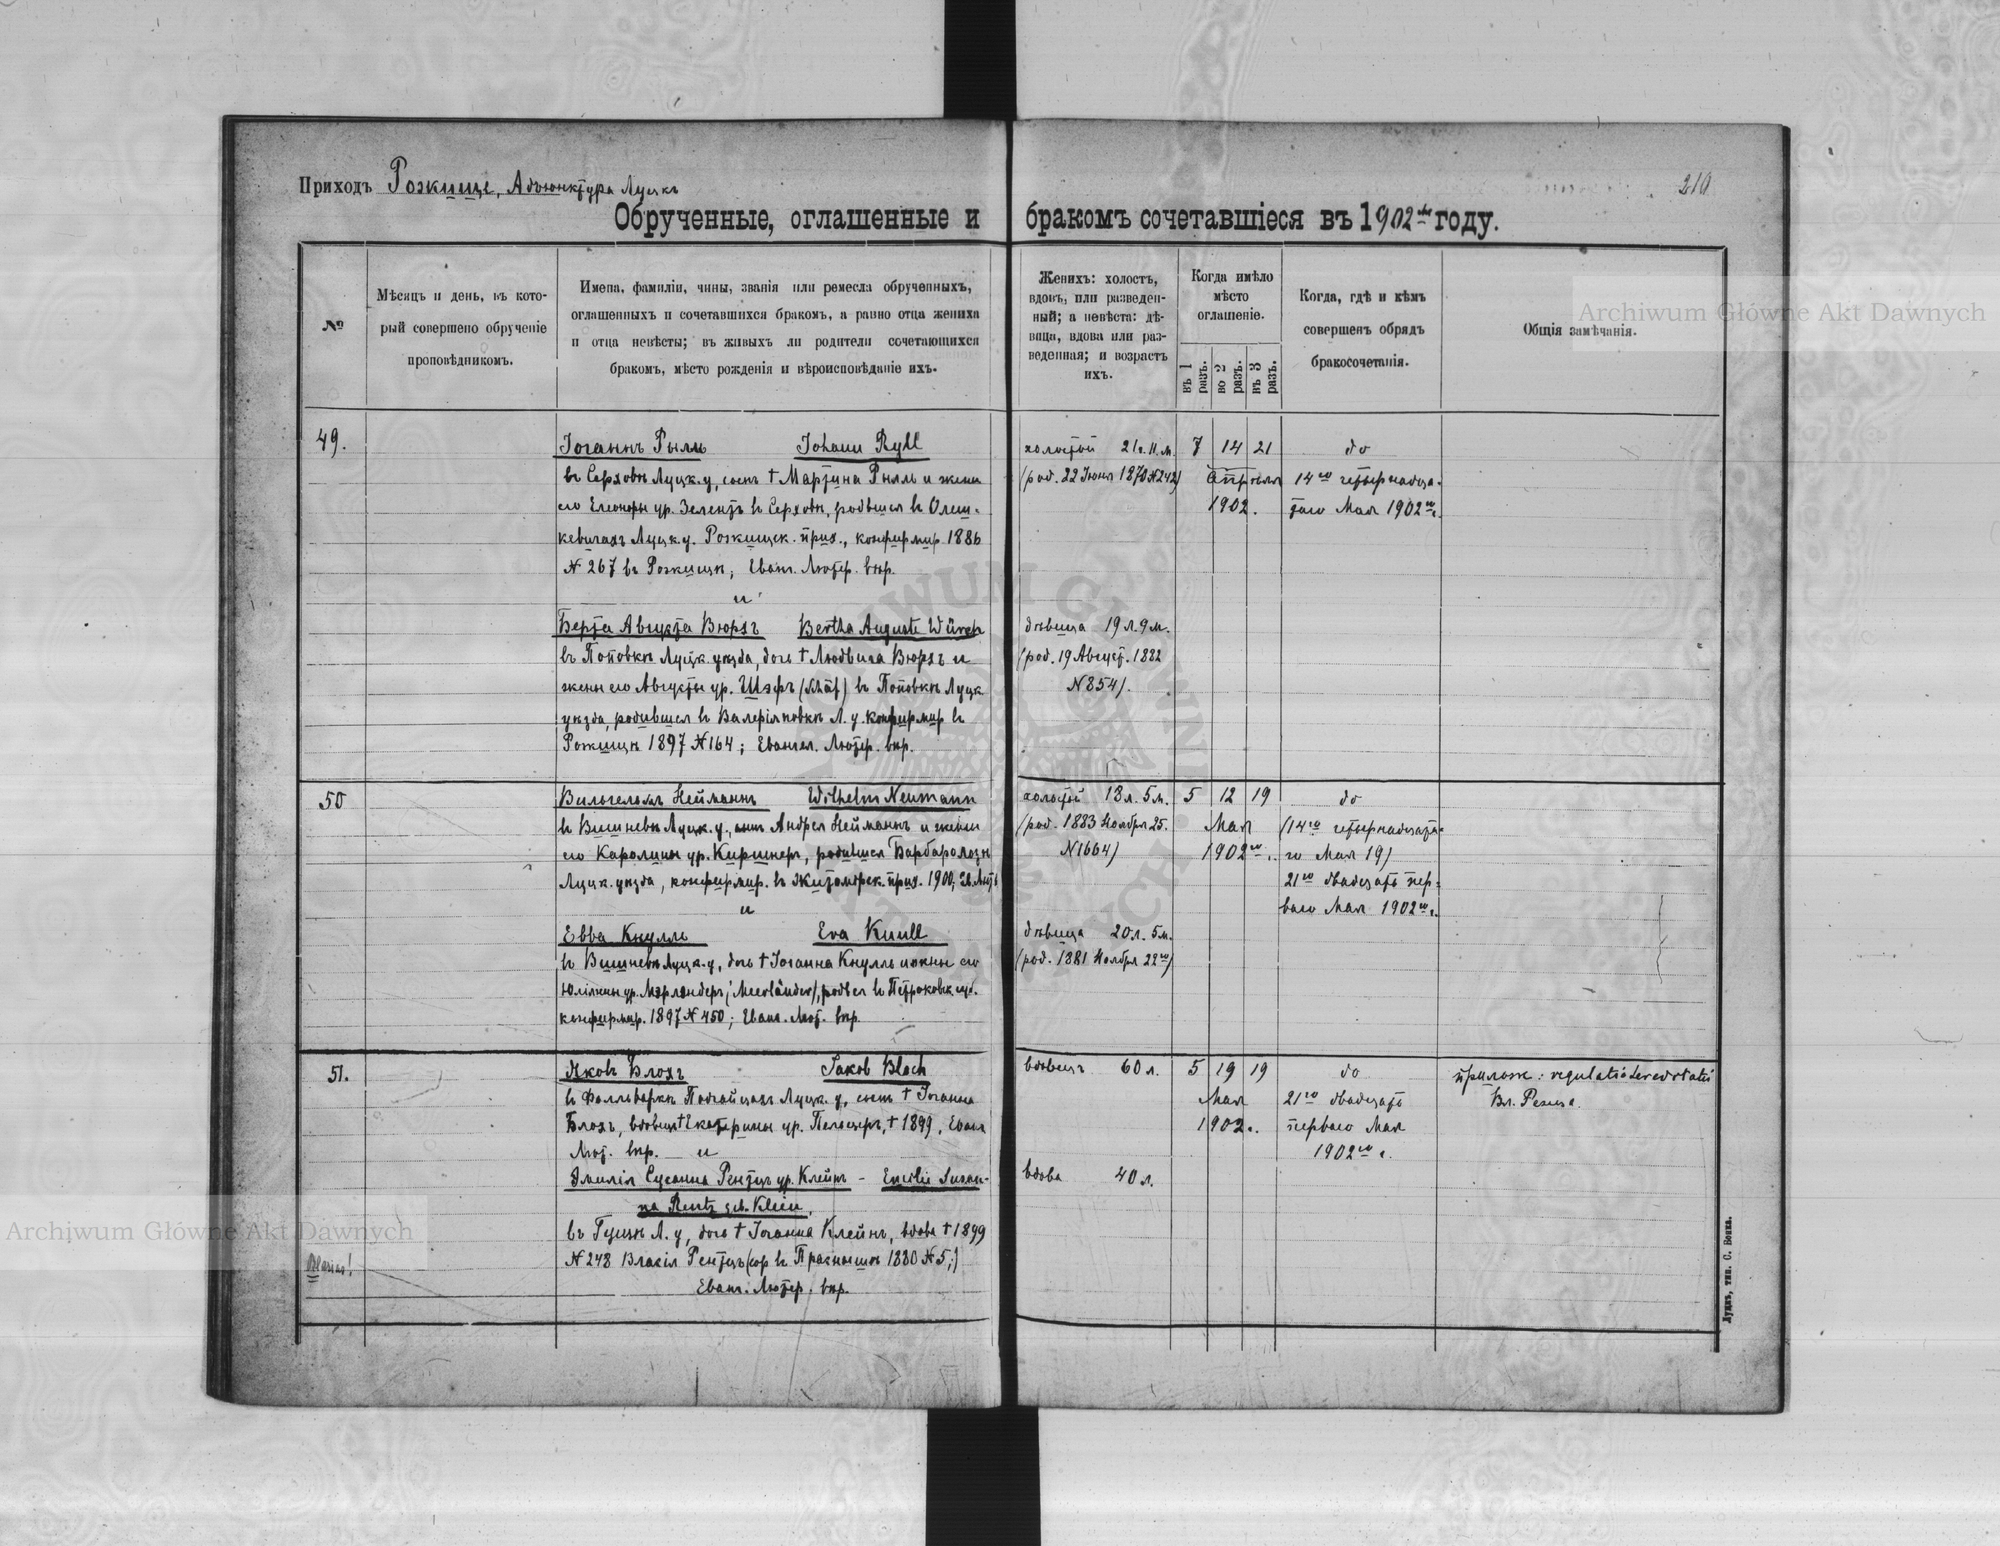 Приходъ Рожище, Адъюнктура Луцкъ
210
Обрученные, оглашенные и бракомъ сочетавшіеся въ 1902 году.
№
Мѣсяцъ и день, въ кото-
рый совершено обрученіе
проповѣдникомъ.
Имена, фамиліи, чины, званія или ремесла обрученныхъ,
оглашенныхъ и сочетавшихся бракомъ, а равно отца жениха
и отца невѣсты; въ живыхъ ли родители сочетающихся
бракомъ, мѣсто рожденія и вѣроисповѣданіе ихъ.
Женихъ: холостъ,
вдовъ, или разведен-
ный; а невѣста: дѣ-
вица, вдова или раз-
веденная; и возрастъ
ихъ.
Когда имѣло
мѣсто
оглашеніе.
въ 1 разъ.
во 2 разъ.
въ 3 разъ.
Когда, гдѣ и кѣмъ
совершенъ обрядъ
бракосочетанія.
Общія замѣчанія.
49.
Іоганнъ Рылль Johann Ryll
въ Серховѣ Луцк. у, сынъ † Мартина Рылль и жены
его Елеоноры ур. Зелентъ въ Серховѣ, родвшся въ Олеш-
кевичахъ Луцк. у. Рожищск. прих., конфирмир. 1886
№ 267 въ Рожищѣ; Еванг. Лютер. вѣр.
и
Берта Августа Вюрхъ Bertha Auguste Würch
въ Поповкѣ Луцк. уѣзда, дочь † Людвига Вюрхъ и
жены его Августы ур. Шэфъ (Schäf) въ Поповкѣ Луцк
уѣзда, родившся въ Валеріяновкѣ Л. у. конфирмир въ
Рожищѣ 1897 № 164; Евангел. Лютер. вѣр.
холостой 21 г. 11. м.
(род. 22 Іюня 1870 № 242)
дѣвица 19 л. 9 м.
(род. 19 Август. 1882
№ 854).
7 14 21
Апрѣля
1902.
до
14го четырнадца-
таго Мая 1902го г.
50
Вильгельмъ Нейманнъ Wilhelm Neumann
въ Вишневѣ Луцк. у., сынъ Андрея Нейманнъ и жены
его Каролины ур. Киршнеръ, родившся Барбаролозы
Луцк. уѣзда, конфирмир. въ Житомірск. прих. 1900; Ев Лют
и
Евва Кнулль Eva Knull
въ Вишневѣ Луцк. у, дочь † Іоганна Кнулль и жены его
Юліянны ур. Мэрлэндеръ (Meerländer), родвся въ Петроковск. губ.
конфирмир. 1897 № 450; Еванг. Лют. вѣр.
холостой 18 л. 5 м.
(род. 1883 Ноября 25.
№ 1664)
дѣвица 20 л. 5 м.
(род. 1881 Ноября 22го)
5 12 19
Мая
1902го г.
до
(14го четырнадцата-
го Мая 19)
21го двадцать пер-
ваго Мая 1902го г.
51.
Яковъ Блохъ Jakob Bloch
въ Фольваркѣ Подгайцахъ Луцк. у, сынъ † Іоганна
Блохъ, вдовецъ † Екатерины ур. Пельцеръ, † 1899, Еванг
Лют. вѣр. и
Эмилія Сусанна Рентцъ ур. Клейнъ - Emilie Susan-
na Rentz geb. Klein,
въ Гущѣ Л. у, дочь † Іоганна Клейнъ, вдова † 1899
№ 248 Власія Рентцъ (кор въ Праснышѣ 1880 № 5;)
Еванг. Лютер. вѣр.
вдовецъ 60 л.
вдова 40 л.
5 19 19
Мая
1902 г.
до
21го двадцать
перваго Мая
1902го г.
прилож:
Луцкъ, тип. С. Бонка.
Archiwum Główne Akt Dawnych
Archiwum Główne Akt Dawnych